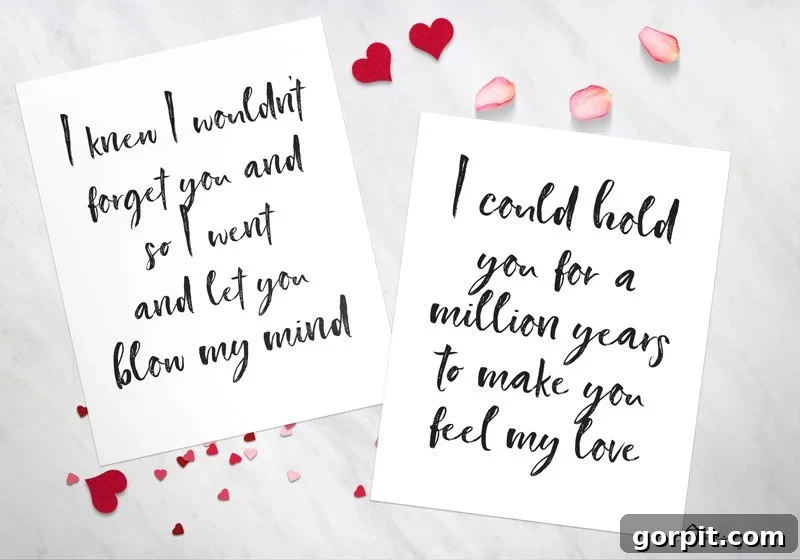 I knew I wouldn't
forget you and
so I went
and let you
blow my mind
I could hold
you for a
million years
to make you
feel my love
gorpit.com